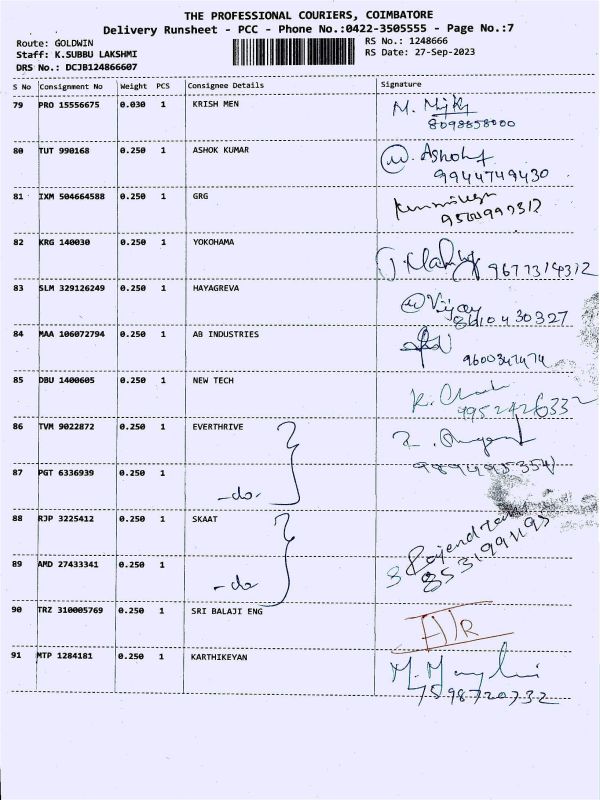 THE PROFESSIONAL COURIERS, COIMBATORE
Delivery Runsheet - PCC - Phone No.:0422-3505555 - Page No.:7
Route: GOLDWIN RS No.: 1248666
Staff: K.SUBBU LAKSHMI RS Date: 27-Sep-2023
DRS No.: DCJB124866607
S No Consignment No Weight PCS Consignee Details Signature
79 PRO 15556675 0.030 1 KRISH MEN M.
8098858000
80 TUT 990168 0.250 1 ASHOK KUMAR Ashok
9944749430
81 IXM 504664588 0.250 1 GRG
82 KRG 140030 0.250 1 YOKOHAMA
9677314312
83 SLM 329126249 0.250 1 HAYAGREVA Vijay
8610430327
84 MAA 106072794 0.250 1 AB INDUSTRIES
9600347474
85 DBU 1400605 0.250 1 NEW TECH K.
9952426332
86 TVM 9022872 0.250 1 EVERTHRIVE
87 PGT 6336939 0.250 1 -do- 9894495354
88 RJP 3225412 0.250 1 SKAAT Rajendran
89 AMD 27433341 0.250 1 -do 8531991195
90 TRZ 310005769 0.250 1 SRI BALAJI ENG
91 MTP 1284181 0.250 1 KARTHIKEYAN M.
7598720732